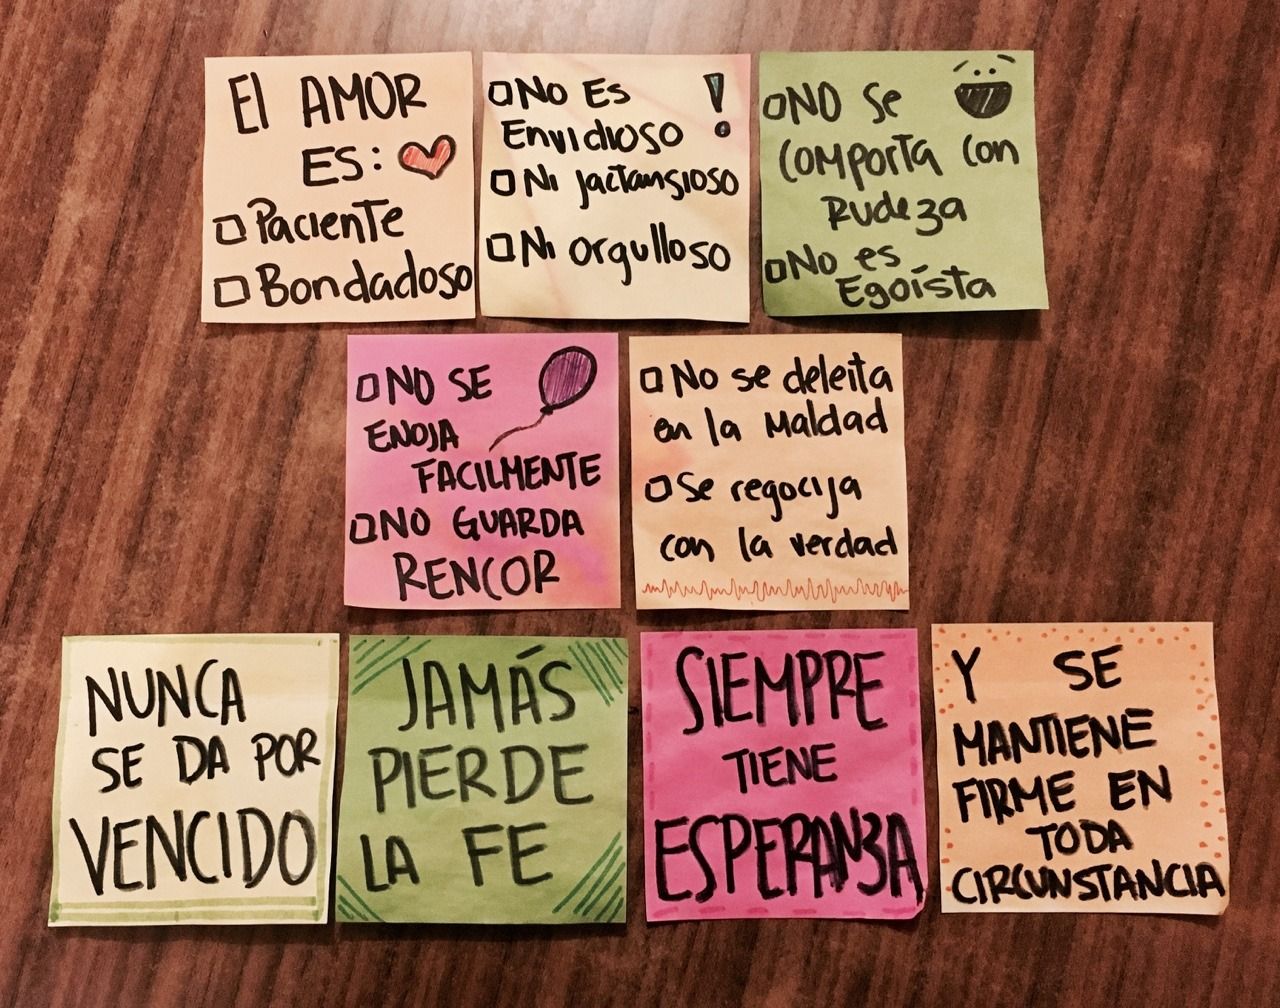 El AMOR
ES:
Paciente
Bondadoso
No Es
Envidioso
Ni jactansioso
Ni orgulloso
NO se
comporta con
Rudeza
No es
Egoísta
NO SE
ENOJA
FACILMENTE
NO GUARDA
RENCOR
No se deleita
en la Maldad
Se regocija
con la verdad
NUNCA
SE DA POR
VENCIDO
JAMÁS
PIERDE
LA FE
SIEMPRE
TIENE
ESPERANZA
Y SE
MANTIENE
FIRME EN
TODA
CIRCUNSTANCIA